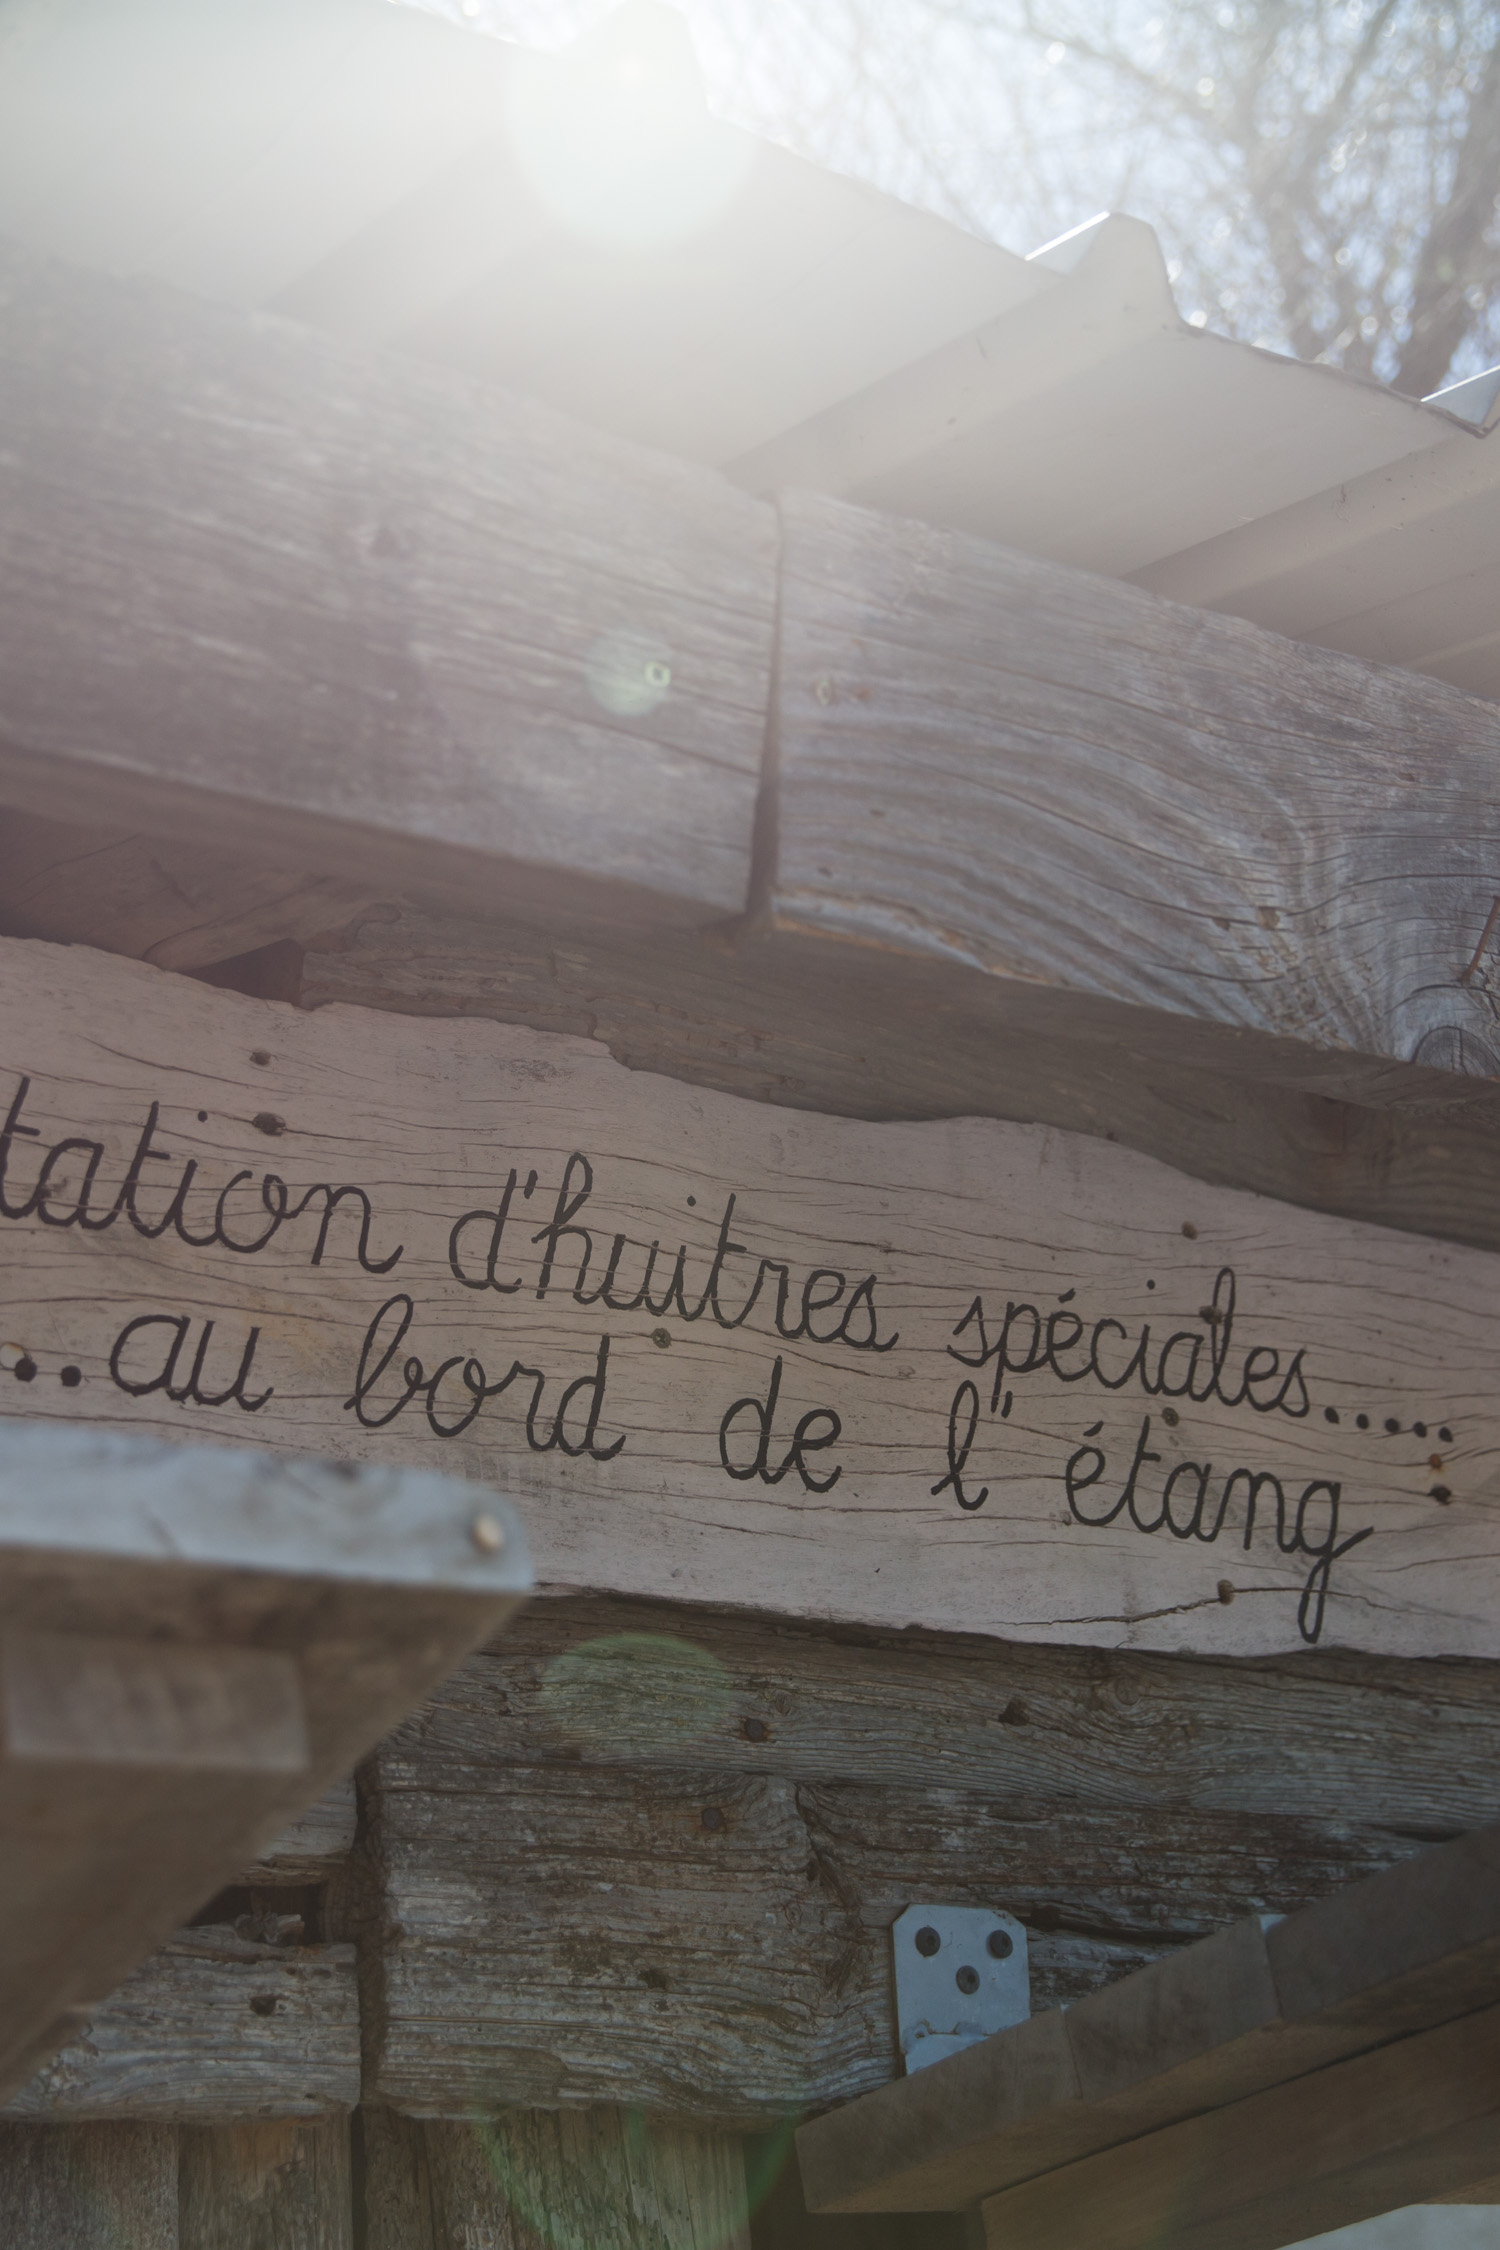 tation d'huitres spéciales.....
..au bord de l'' étang